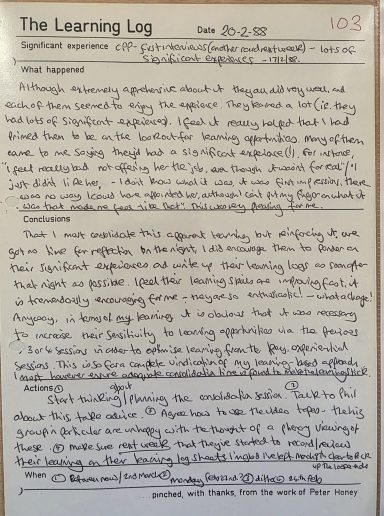 The Learning Log
Date 20-2-88
103
Significant experience CPP - first interviews (another round next week) - lots of
significant experiences - 17/2/88.
What happened
Although extremely apprehensive about it they all did very well, and
each of them seemed to enjoy the experience. They learned a lot (ie. they
had lots of significant experiences). I feel it really helped that I had
primed them to be on the lookout for learning opportunities. Many of them
came to me saying they'd had a significant experience (!). For instance,
"I feel really bad not offering her the job, even though it wasn't for real"/"I
just didn't like her, - I don't know what it was, it was first impressions, there
was no way I could have appointed her, although I can't put my finger on what it
was that made me feel like that". This was very pleasing for me.
Conclusions
That I must consolidate this apparent learning by reinforcing it, we
got no time for reflection on the night, I did encourage them to ponder on
their significant experiences and write up their learning logs as soon after
that night as possible. I feel their learning skills are improving fast, it
is tremendously encouraging for me - they are so enthusiastic! - what a change!
Anyway, in terms of my learning it is obvious that it was necessary
to increase their sensitivity to learning opportunities via the previous
3 or 4 sessions in order to optimise learning from the key, experiential
sessions. This is so far a complete vindication of my learning-based approach,
I must however ensure adequate consolidation time is found to make the learning stick.
Actions ① Start thinking about / planning the consolidation session. ③ Talk to Phil
about this take advice. ② Agree how to use the video tapes - the
group in particular are unhappy with the thought of a plenary viewing of
these. ④ Make sure next week that they've started to record/review
their learning on their learning log sheets
up the loose ends
When ① Between now / 2nd March ② Monday Feb 22nd ③ ditto ④ 24th Feb
...pinched, with thanks, from the work of Peter Honey